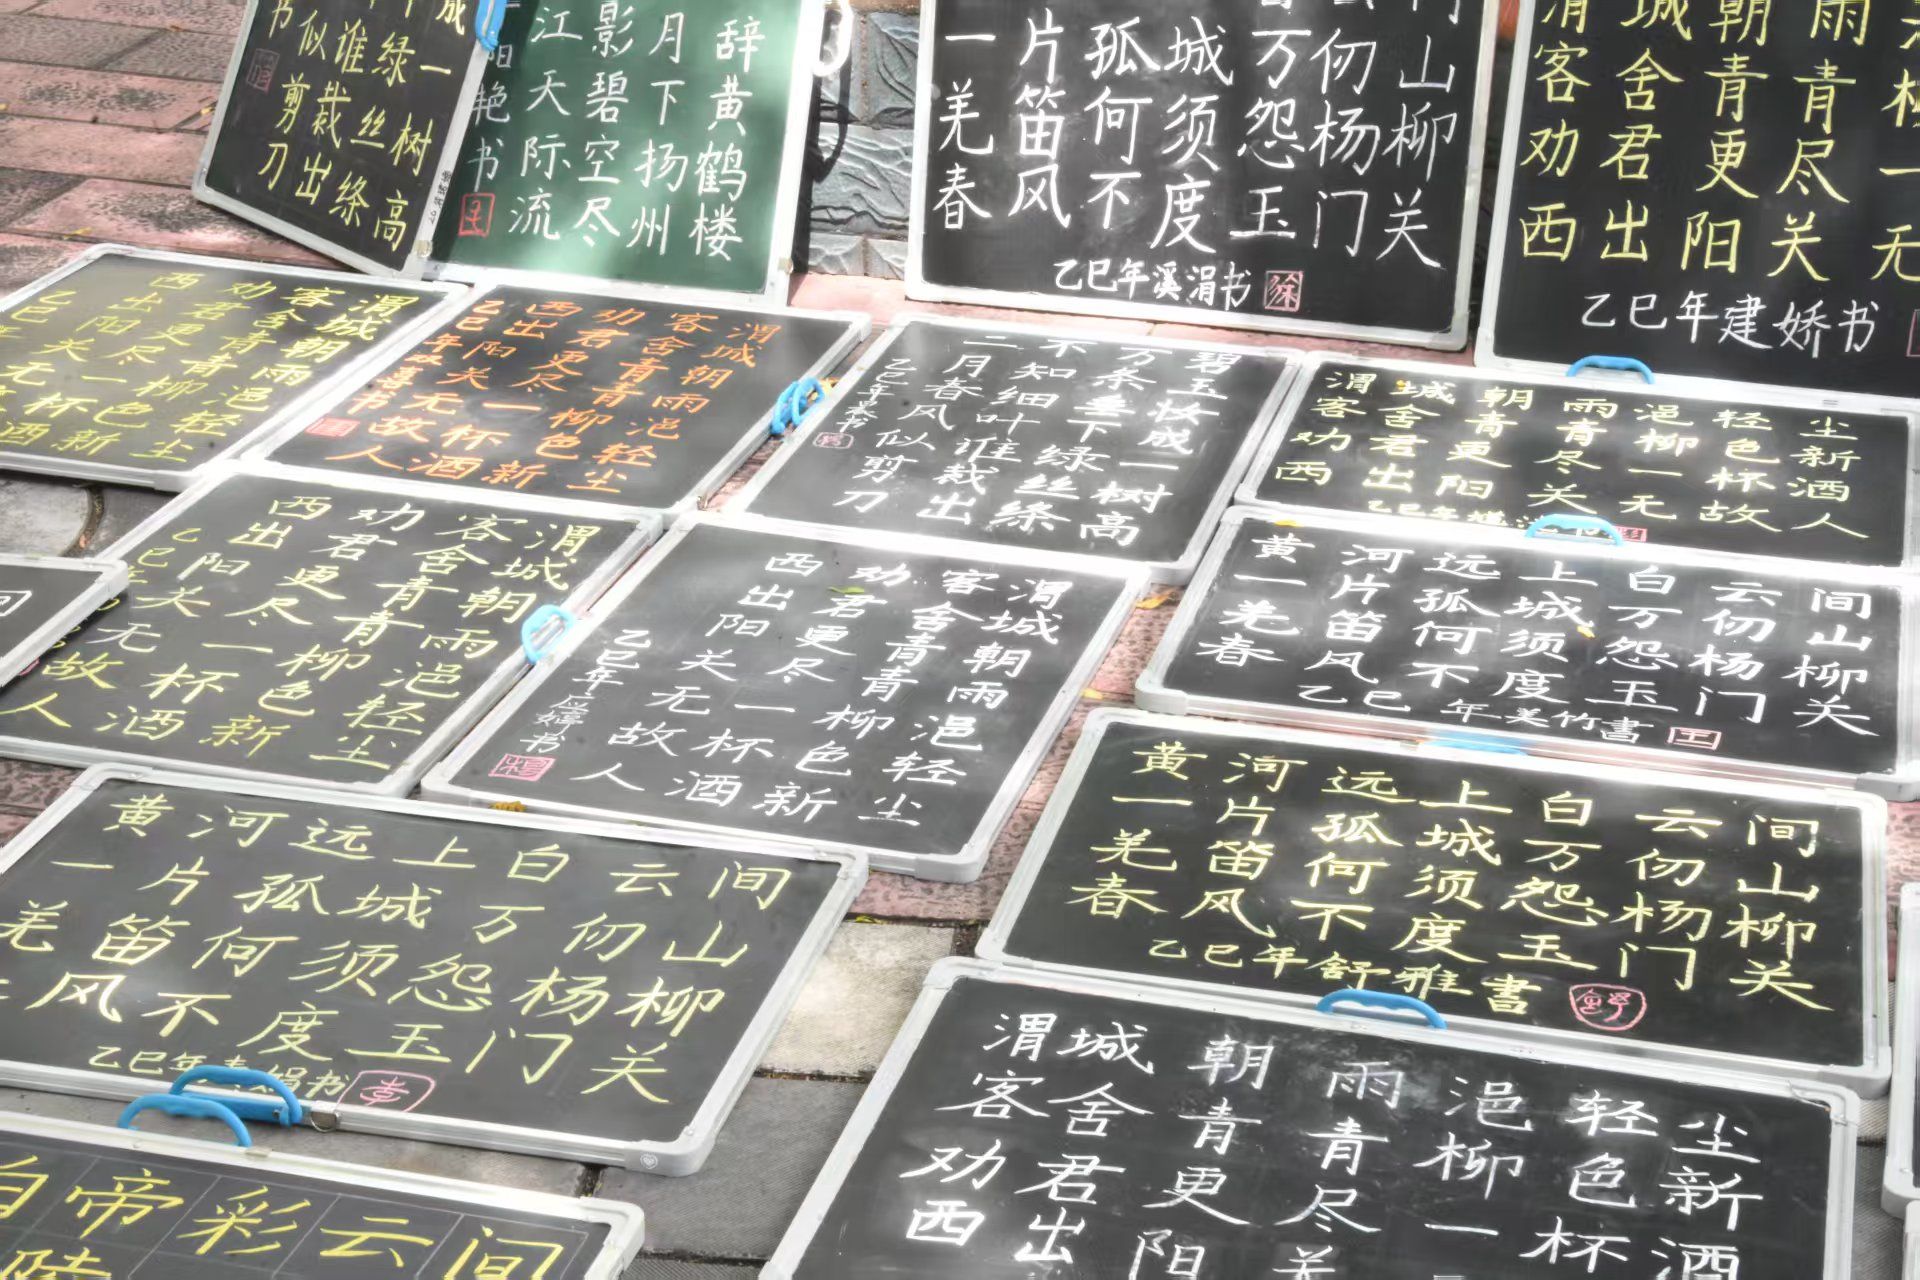 成一树高
绿丝绦
谁裁出
似剪刀
书
辞黄鹤楼
月下扬州
影碧空尽
江天际流
阳艳书
一片孤城万仞山
羌笛何须怨杨柳
春风不度玉门关
乙巳年溪涓书
徐
渭城朝雨
客舍青青柳
劝君更尽一
西出阳关无
乙巳年建娇书
渭城朝雨浥轻尘
客舍青青柳色新
劝君更尽一杯酒
西出阳关无
乙巳年
渭城朝雨浥轻尘
客舍青青柳色新
劝君更尽一杯酒
西出阳关无故人
乙巳年双喜书
碧玉妆成一树高
万条垂下绿丝绦
不知细叶谁裁出
二月春风似剪刀
乙巳年
书
渭城朝雨浥轻尘
客舍青青柳色新
劝君更尽一杯酒
西出阳关无故人
乙巳年
渭城朝雨浥轻尘
客舍青青柳色新
劝君更尽一杯酒
西出阳关无故人
乙巳年
渭城朝雨浥轻尘
客舍青青柳色新
劝君更尽一杯酒
西出阳关无故人
乙巳年应婷书
杨
黄河远上白云间
一片孤城万仞山
羌笛何须怨杨柳
春风不度玉门关
乙巳年美竹書
黄河远上白云间
一片孤城万仞山
羌笛何须怨杨柳
风不度玉门关
乙巳年
娟书
李
黄河远上白云间
一片孤城万仞山
羌笛何须怨杨柳
春风不度玉门关
乙巳年舒雅書
舒
渭城朝雨浥轻尘
客舍青青柳色新
劝君更尽一杯酒
西出阳关
白帝彩云间
陵